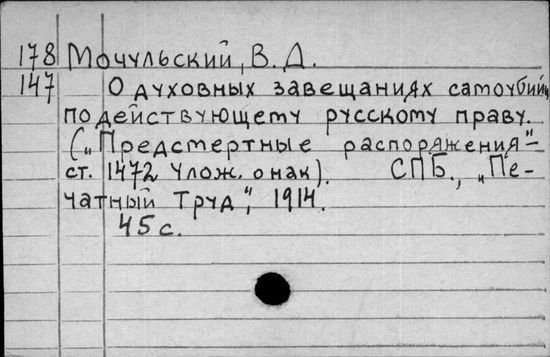 178 Мочульский, В. Д.
147 О духовных завещаниях самоубийц
по действующему русскому праву.
(„Предсмертные распоряжения"-
ст. 1472 Улож. о нак). СПБ., „Пе-
чатный Труд", 1914.
45 с.